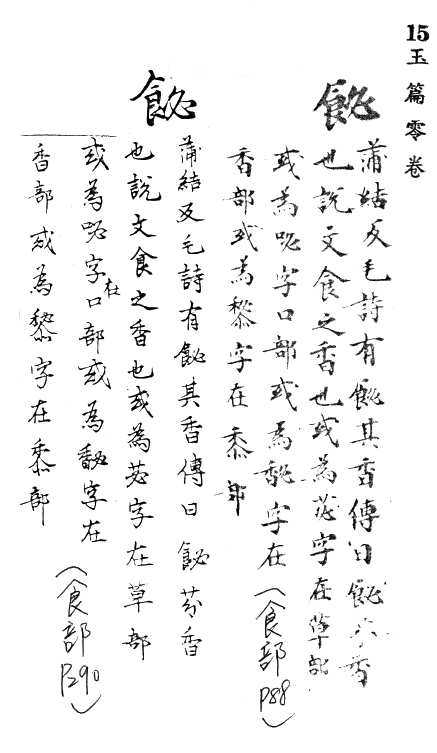 15 玉篇零卷
飶
蒲結反毛詩有飶其香傳曰飶芬香
也說文食之香也或為苾字在草部
或為咇字口部或為馝字在
香部或為黎字在黍部
(食部P88)
飶
蒲結反毛詩有飶其香傳曰飶芬香
也說文食之香也或為苾字在草部
或為咇字在口部或為馝字在
香部或為黎字在黍部
(食部P290)